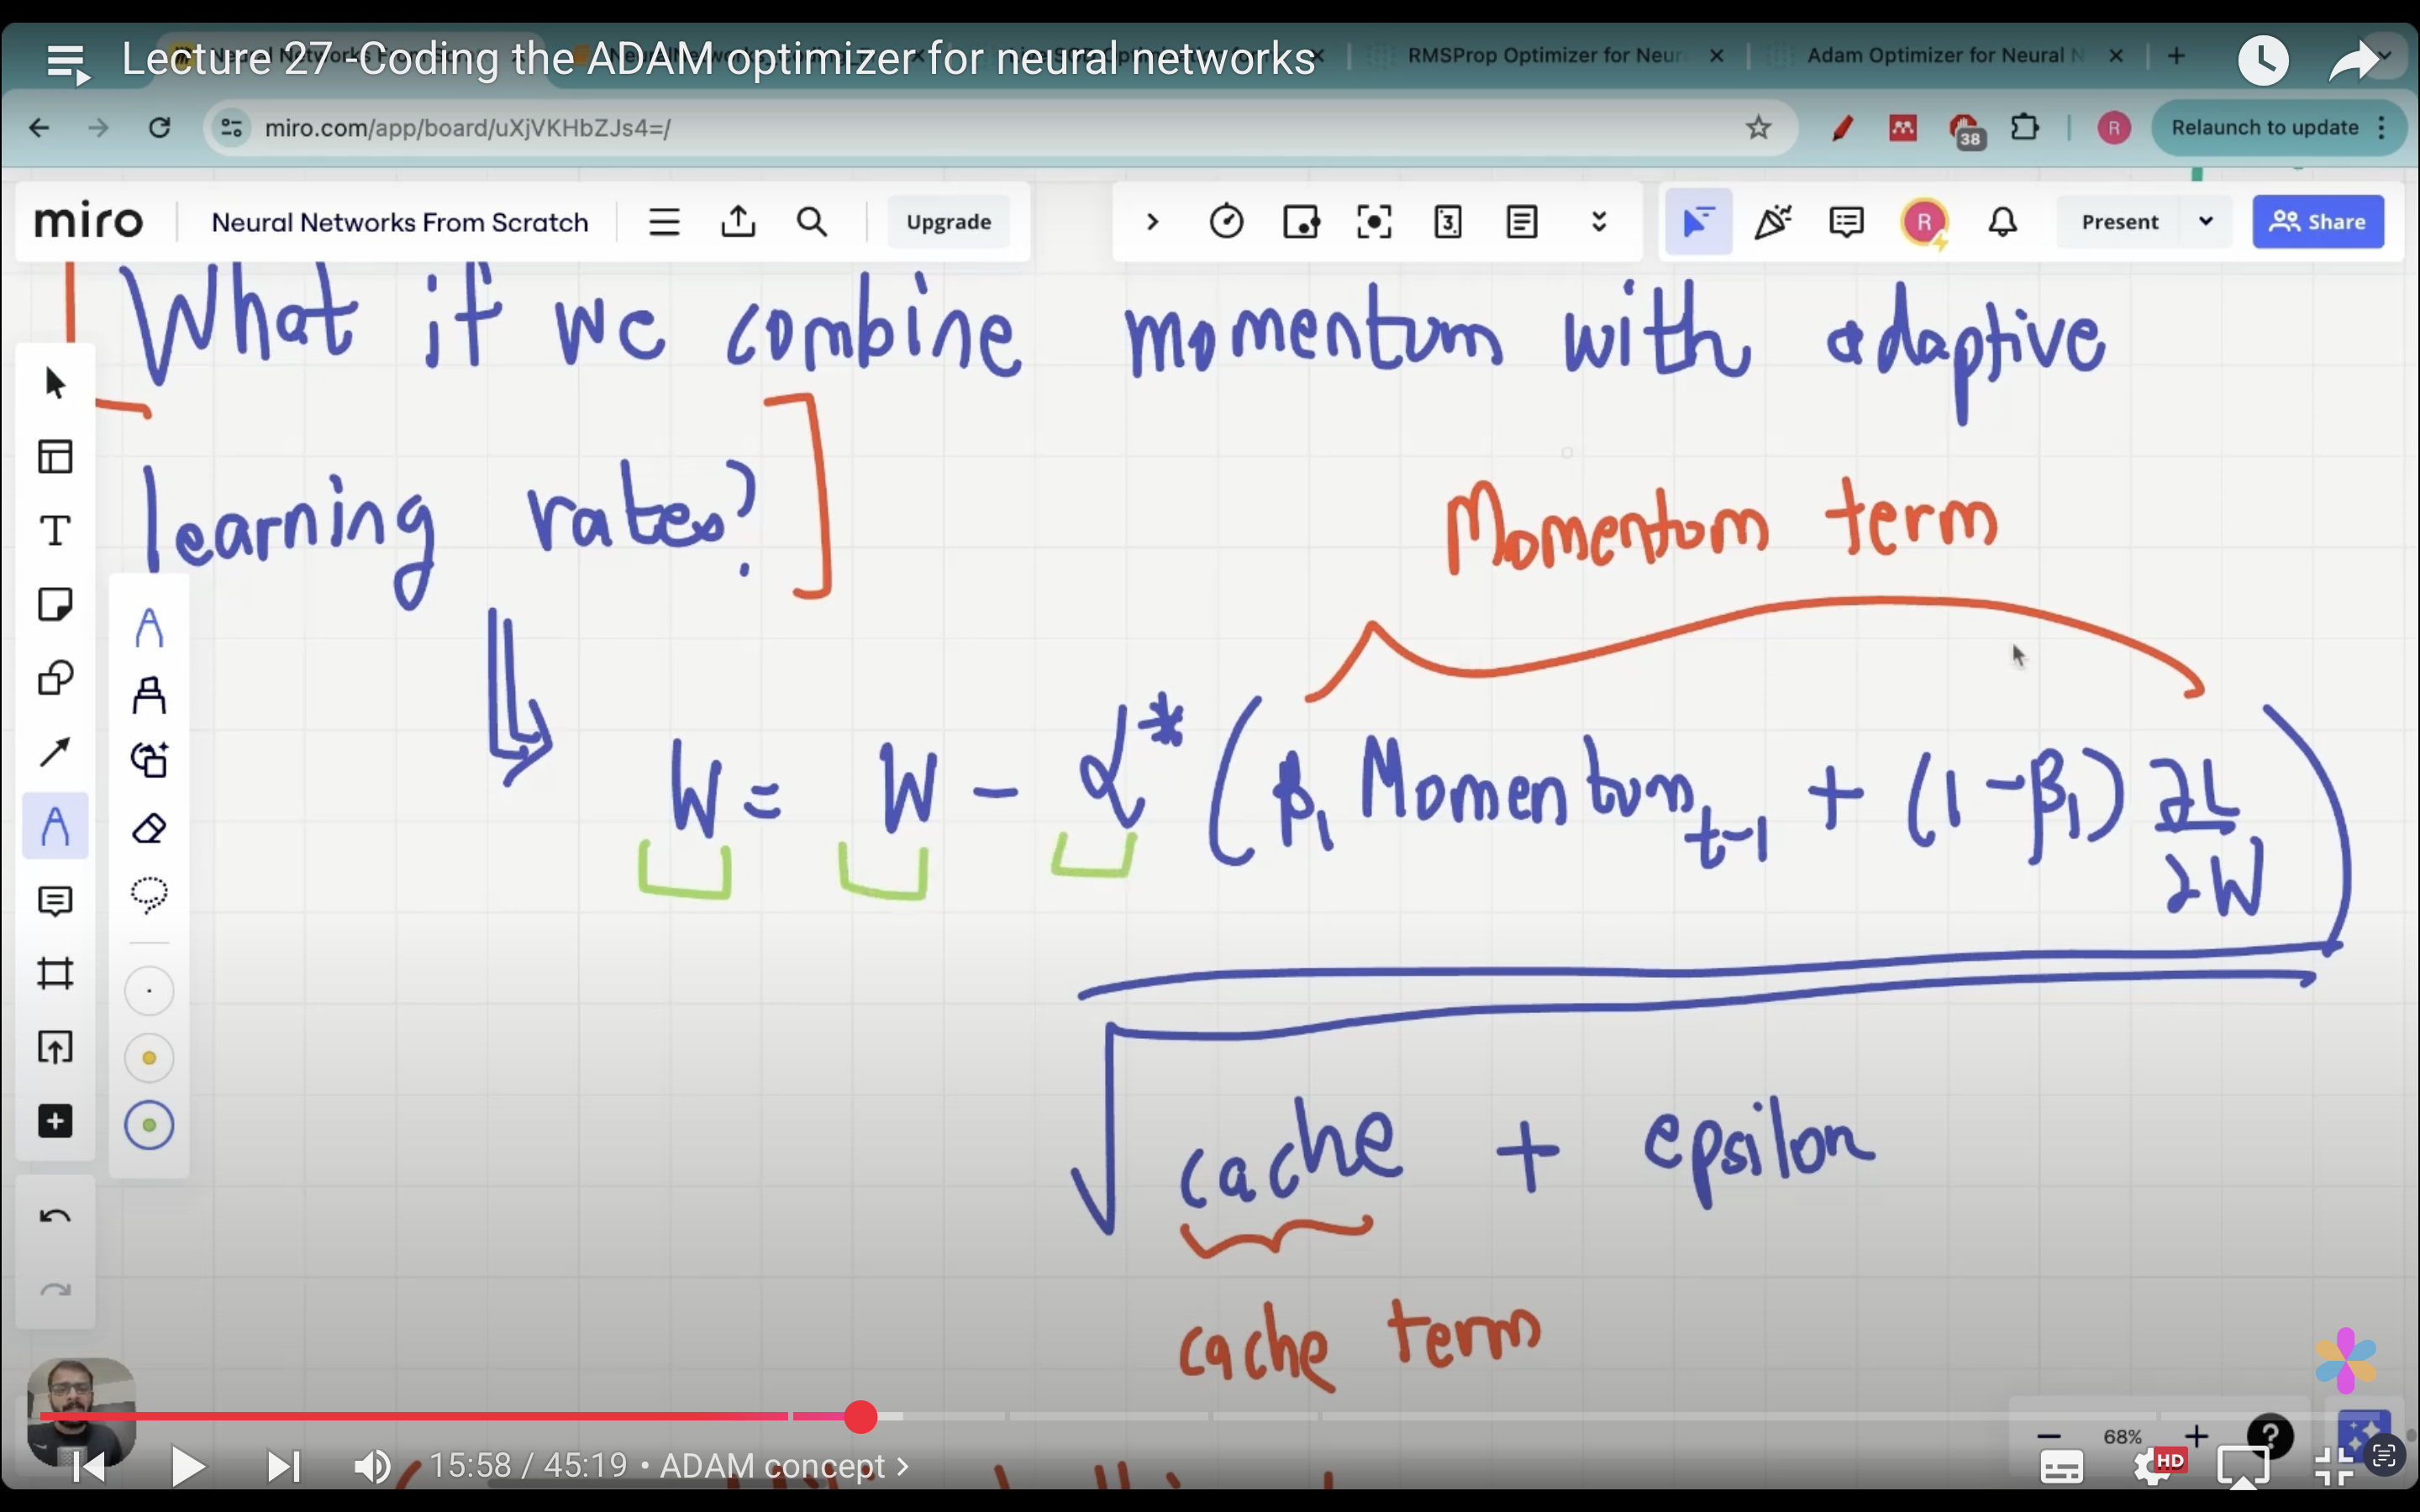 Lecture 27 -Coding the ADAM optimizer for neural networks
RMSProp Optimizer for Neur
Adam Optimizer for Neural N
miro.com/app/board/uXjVKHbZJs4=/
38
R
Relaunch to update
miro
Neural Networks From Scratch
Upgrade
3
R
Present
Share
What if we combine momentum with adaptive
learning rates?
Momentum term
W = W - α* (β₁ Momentum_t-1 + (1-β₁) ∂L/∂W)
√ cache + epsilon
cache term
68%
15:58 / 45:19 • ADAM concept
HD